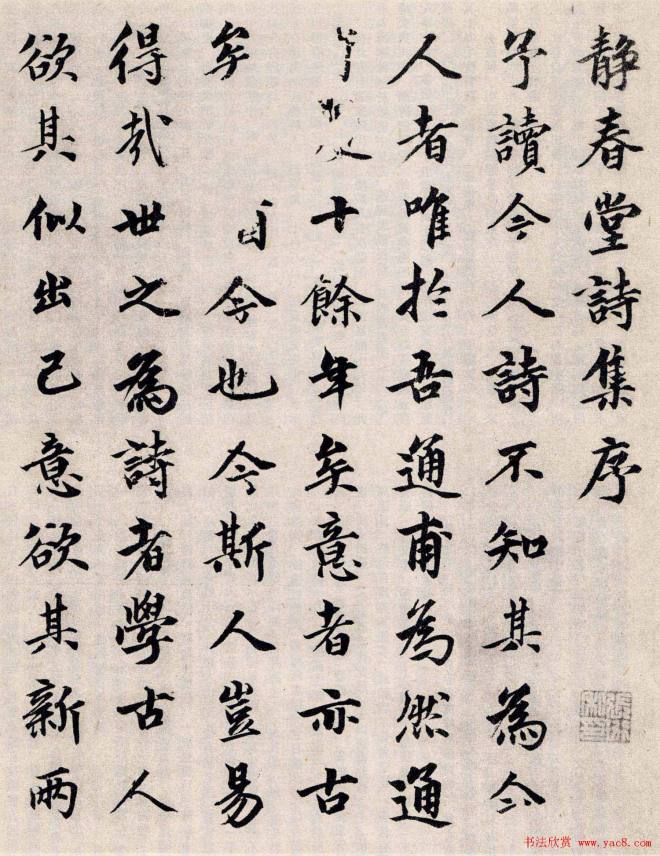 静春堂詩集序
予讀今人詩不知其為今
人者唯扵吾通甫為然通
十餘年矣意者亦古
矣 今也今斯人豈易
得哉世之為詩者學古人
欲其似出己意欲其新兩
书法欣赏 www.yac8.com